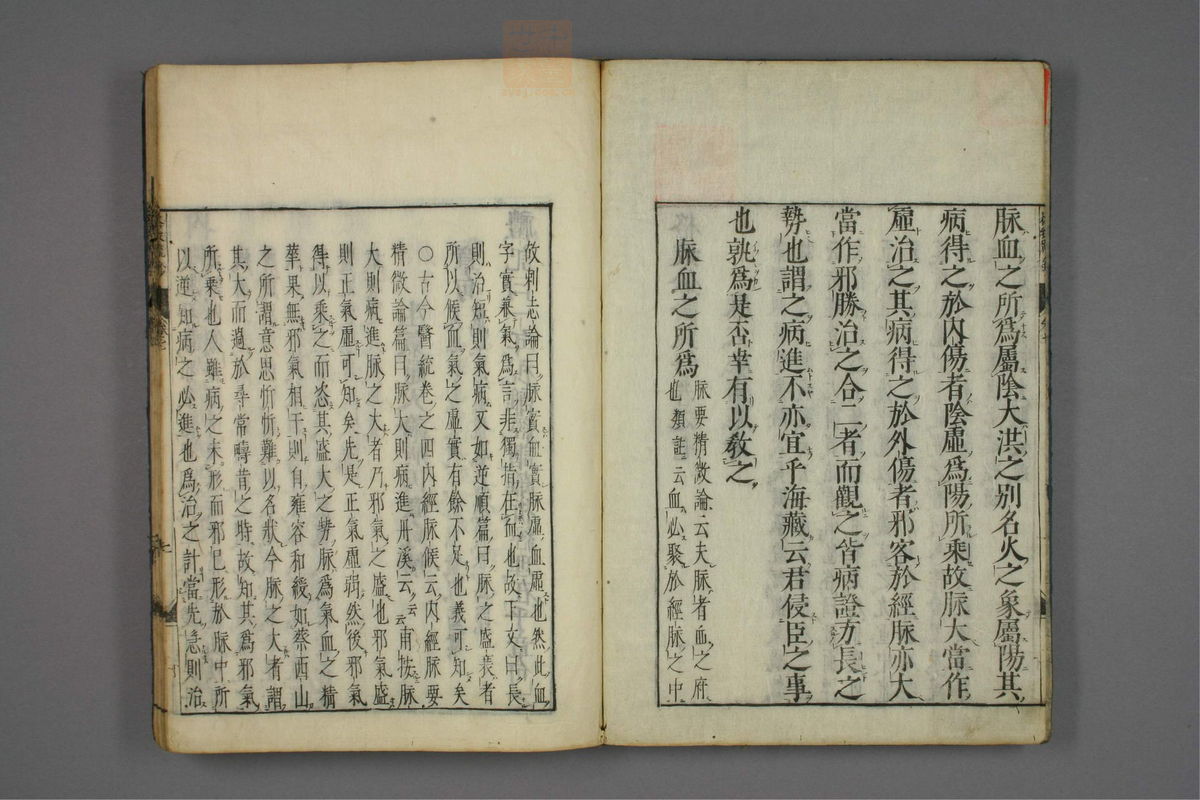 脉血之所為屬陰大洪之别名火之象屬陽其
病得之於内傷者陰虚為陽所乘故脉大當作
虚治之其病得之於外傷者邪客於經脉亦大
當作邪勝治之合二者而觀之皆病證方長之
勢也謂之病進不亦宜乎海藏云君侵臣之事
也孰為是否幸有以教之
脉血之所為
脉要精微論云夫脉者血之府
也類註云血必聚於經脉之中
故刺志論曰脉實血實脉虚血虚也然此血
字實兼氣為言非獨指在血也故下文曰長
則治短則氣病又如逆順篇曰脉之盛衰者
所以候血氣之虚實有餘不足也義可知矣
○古今醫統卷之四内經脉候云内經脉要
精微論篇曰脉大則病進丹溪云云甫按脉
大則病進脉之大者乃邪氣之盛也邪氣盛
則正氣虚可知矣先是正氣虚弱然後邪氣
得以乘之而恣其盛大之勢脉為氣血之精
華果無邪氣相干則自雍容和緩如蔡西山
之所謂意思忻忻難以名狀今脉之大者謂
其大而過於尋常疇昔之時故知其為邪氣
所乘也人雖病之未形而邪已形於脉中所
以逆知病之必進也為治之計當先急則治